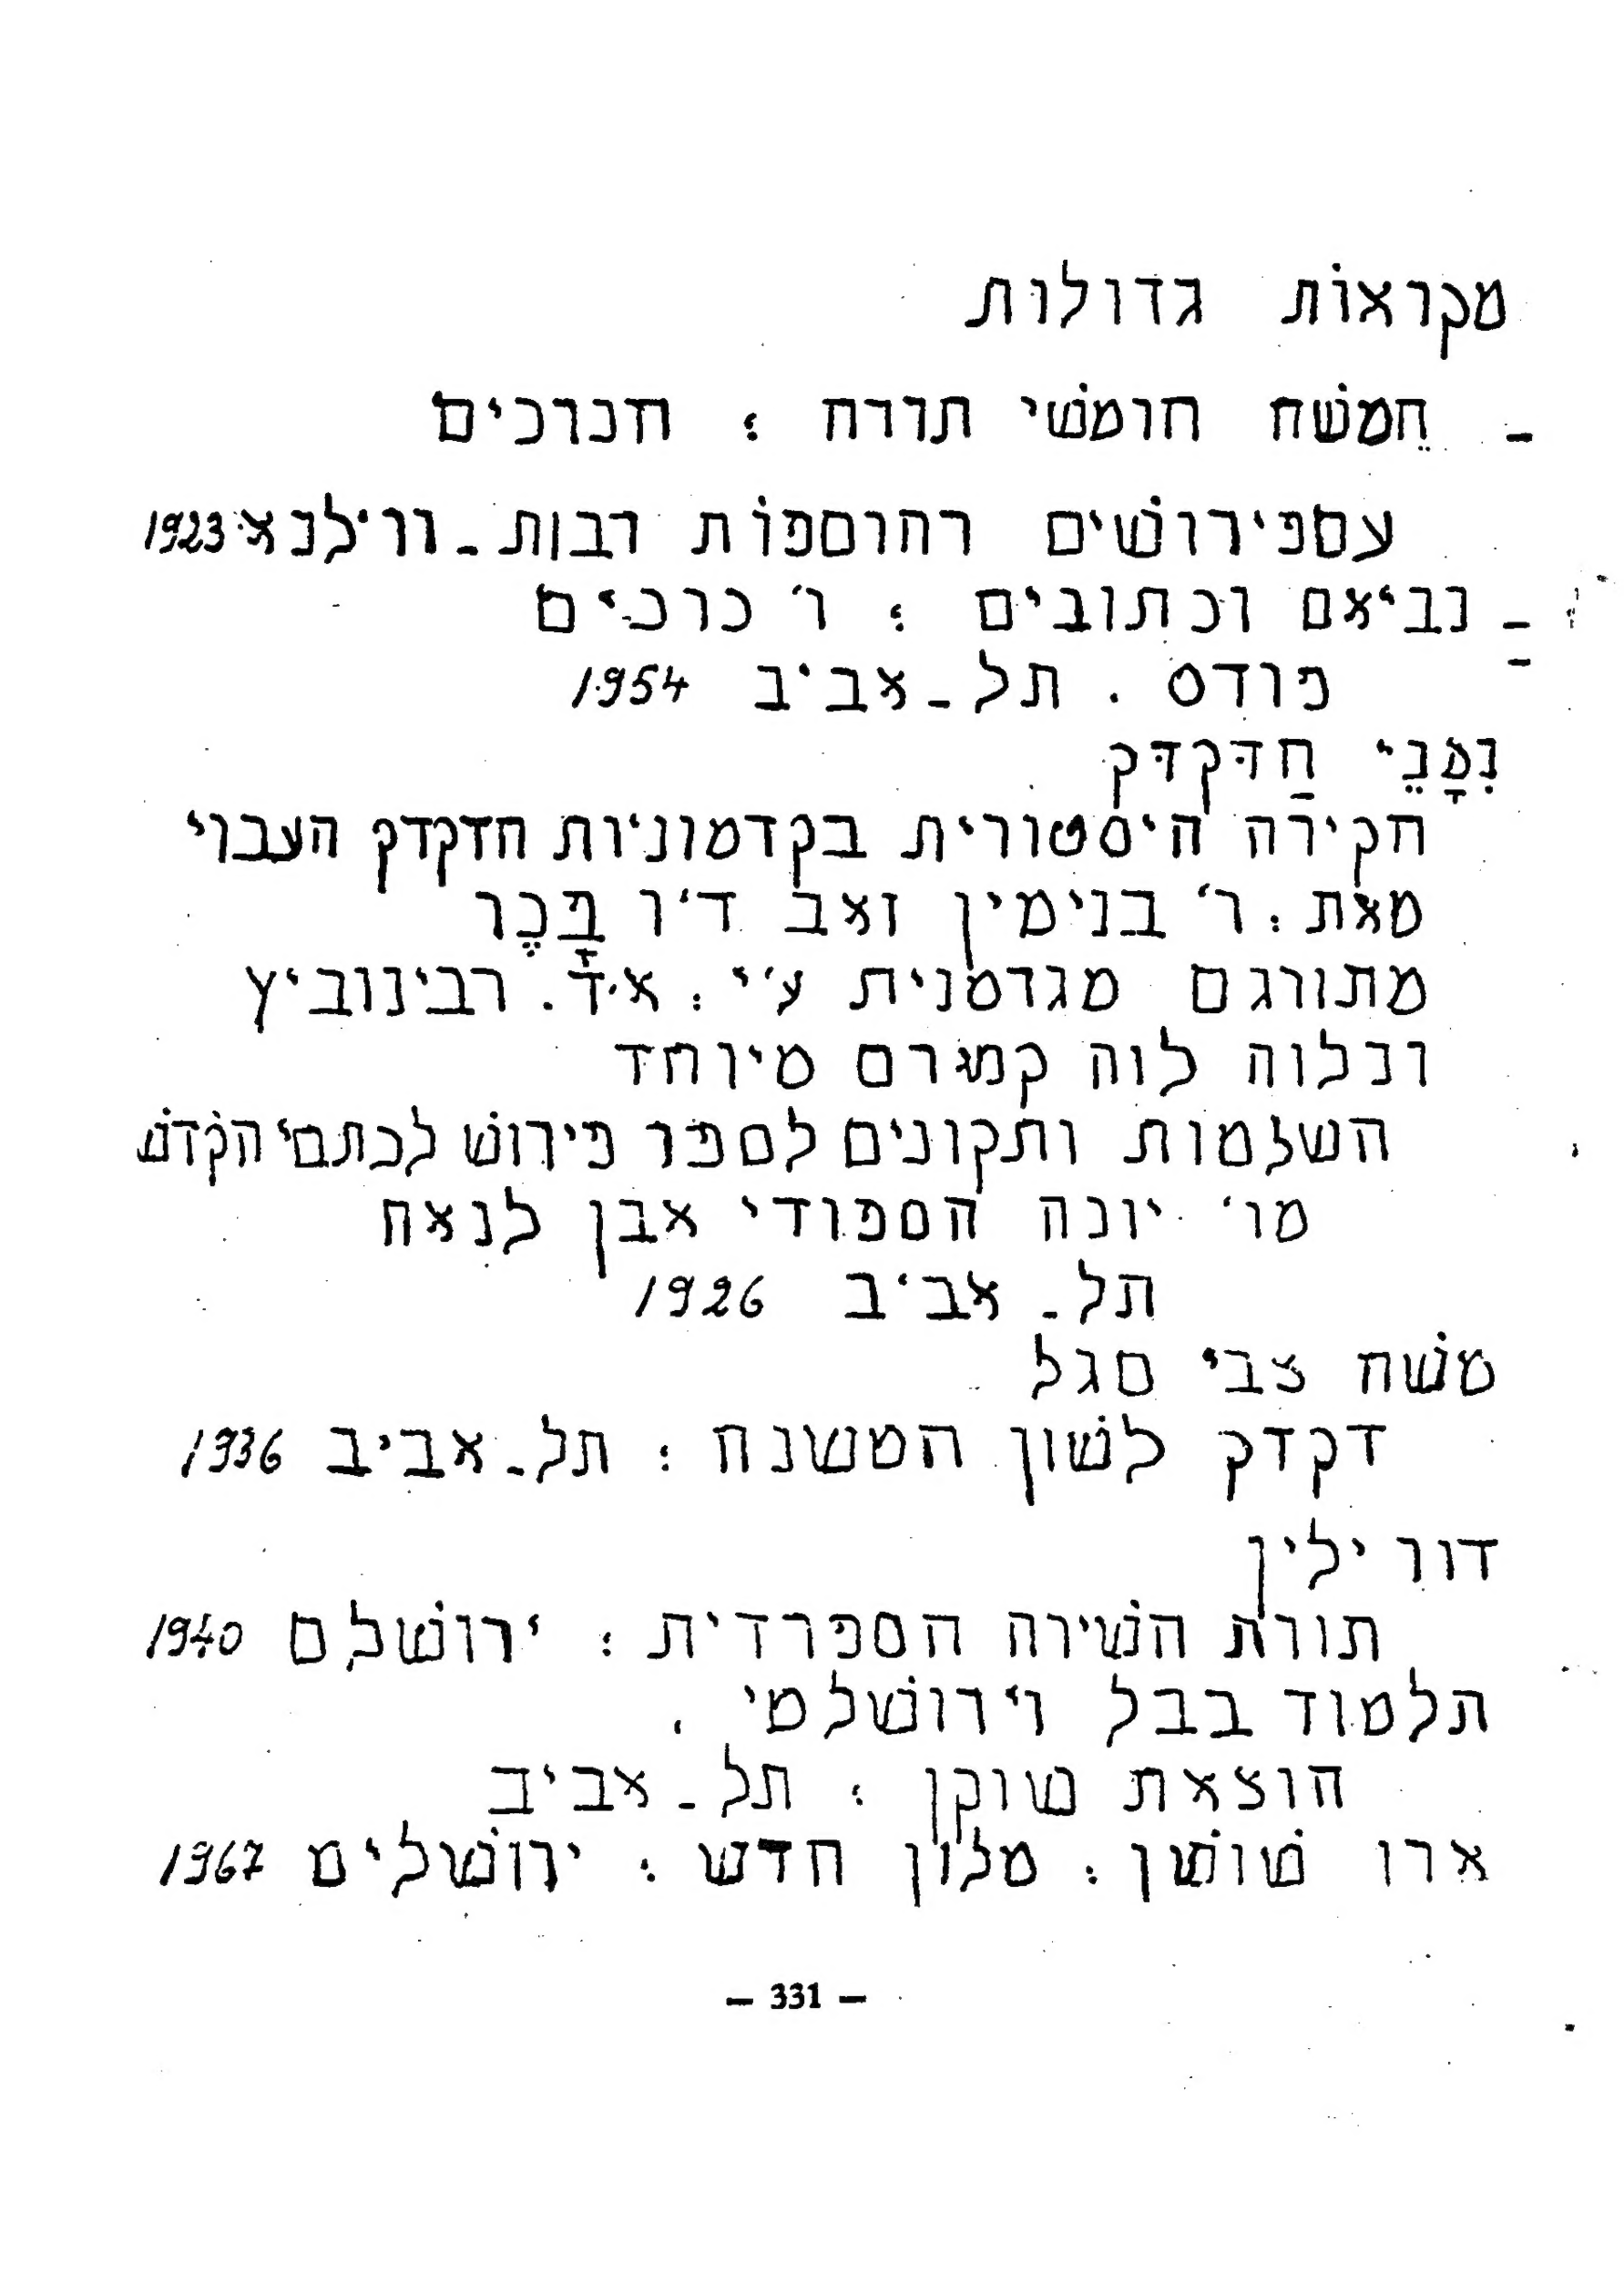 מקראות גדולות
- חֲמשה חומשי תורה : חכרכים
עםפירושים והוספות רבות - ווילנא 1923
- נביאם וכתובים : ו' כרכים
פרדס . תל-אביב 1954
נִצָנֵי הַדּקדּק
חקירה היסטורית בקדמוניות הדקדק העברי
מאת : ר' בנימין זאב ד"ר בָּכֶר
מתורגם מגרמנית ע"י : א.ד. רבינוביץ
ונלוה לזה קונטרס מיוחד
השלמות ותקונים לספר פירוש לכתבי הקדש
מר' יונה הספרדי אבן לנאח
תל - אביב 1926
משה צבי סגל
דקדק לשון המשנה : תל-אביב 1936
דוד ילין
תורת השירה הספרדית : ירושלם 1940
תלמוד בבל וירושלמי .
הוצאת שוקן : תל - אביב
אבן שושן : מלון חדש : ירושלים 1967
— 331 —